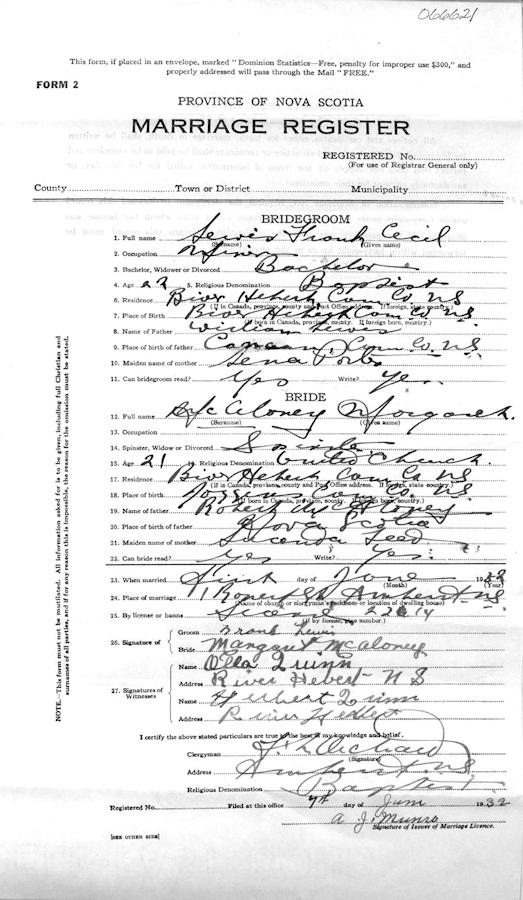 066621
This form, if placed in an envelope, marked "Dominion Statistics—Free, penalty for improper use $300," and
properly addressed will pass through the Mail "FREE."
FORM 2
PROVINCE OF NOVA SCOTIA
MARRIAGE REGISTER
REGISTERED No.
(For use of Registrar General only)
County Town or District Municipality
BRIDEGROOM
1. Full name Lewis Frank Cecil
(Surname) (Given name)
2. Occupation Miner
3. Bachelor, Widower or Divorced Bachelor
4. Age 22 5. Religious Denomination Baptist
6. Residence River Hebert Cum Co. NS
(If in Canada, province, county and Post Office address. If foreign, state country.)
7. Place of Birth River Hebert Cum Co. NS
(If born in Canada, province, county. If foreign born, country.)
8. Name of Father William Lewis
9. Place of birth of father Canaan, Cum Co. NS
10. Maiden name of mother Lena Porter
11. Can bridegroom read? Yes Write? Yes
BRIDE
12. Full name McAloney Margaret
(Surname) (Given name)
13. Occupation
14. Spinster, Widow or Divorced Spinster
15. Age 21 16. Religious Denomination United Church
17. Residence River Hebert Cum Co NS
(If in Canada, province, county and Post Office address. If foreign, state country.)
18. Place of birth Cum Co NS
(If born in Canada, province, county. If foreign born, country.)
19. Name of father Robert McAloney
20. Place of birth of father Nova Scotia
21. Maiden name of mother Lucenda
22. Can bride read? Yes Write? Yes
23. When married First day of June 1932
(Month) (Year)
24. Place of marriage Amherst NS
(Name of church or clergyman's residence or location of dwelling house)
25. By license or banns License
(If by license, give number.)
26. Signature of Groom Frank Lewis
Bride Margaret McAloney
27. Signatures of Witnesses Name Olla Quinn
Address River Hebert N S
Name Herbert Quinn
Address River Hebert
I certify the above stated particulars are true to the best of my knowledge and belief.
Clergyman
(Signature)
Address Amherst NS
Religious Denomination Baptist
Registered No. Filed at this office 7th day of June 1932
A J. Munro
Signature of Issuer of Marriage Licence.
[SEE OTHER SIDE]
NOTE.—This form must not be mutilated. All information asked for is to be given, including full Christian and
surnames of all parties, and if for any reason this is impossible, the reason for the omission must be stated.